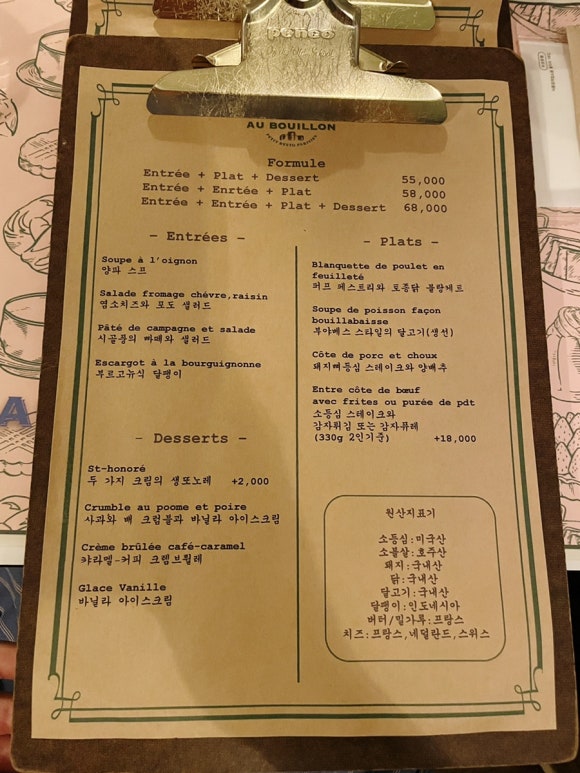 penco
AU BOUILLON
PETIT RESTO PARISIEN
Formule
Entrée + Plat + Dessert 55,000
Entrée + Enrtée + Plat 58,000
Entrée + Entrée + Plat + Dessert 68,000
- Entrées -
Soupe à l'oignon
양파 스프
Salade fromage chévre,raisin
염소치즈와 모도 샐러드
Pâté de campagne et salade
시골풍의 빠떼와 샐러드
Escargot à la bourguignonne
부르고뉴식 달팽이
- Desserts -
St-honoré
두 가지 크림의 생또노레 +2,000
Crumble au poome et poire
사과와 배 크럼블과 바닐라 아이스크림
Crème brûlée café-caramel
캬라멜-커피 크렘브륄레
Glace Vanille
바닐라 아이스크림
- Plats -
Blanquette de poulet en
feuilleté
퍼프 페스트리와 토종닭 블랑케트
Soupe de poisson façon
bouillabaisse
부야베스 스타일의 달고기(생선)
Côte de porc et choux
돼지뼈등심 스테이크와 양배추
Entre côte de bœuf
avec frites ou purée de pdt
소등심 스테이크와
감자튀김 또는 감자퓨레
(330g 2인기준) +18,000
원산지표기
소등심:미국산
소볼살:호주산
돼지:국내산
닭:국내산
달고기:국내산
달팽이:인도네시아
버터/밀가루:프랑스
치즈:프랑스,네덜란드,스위스
A